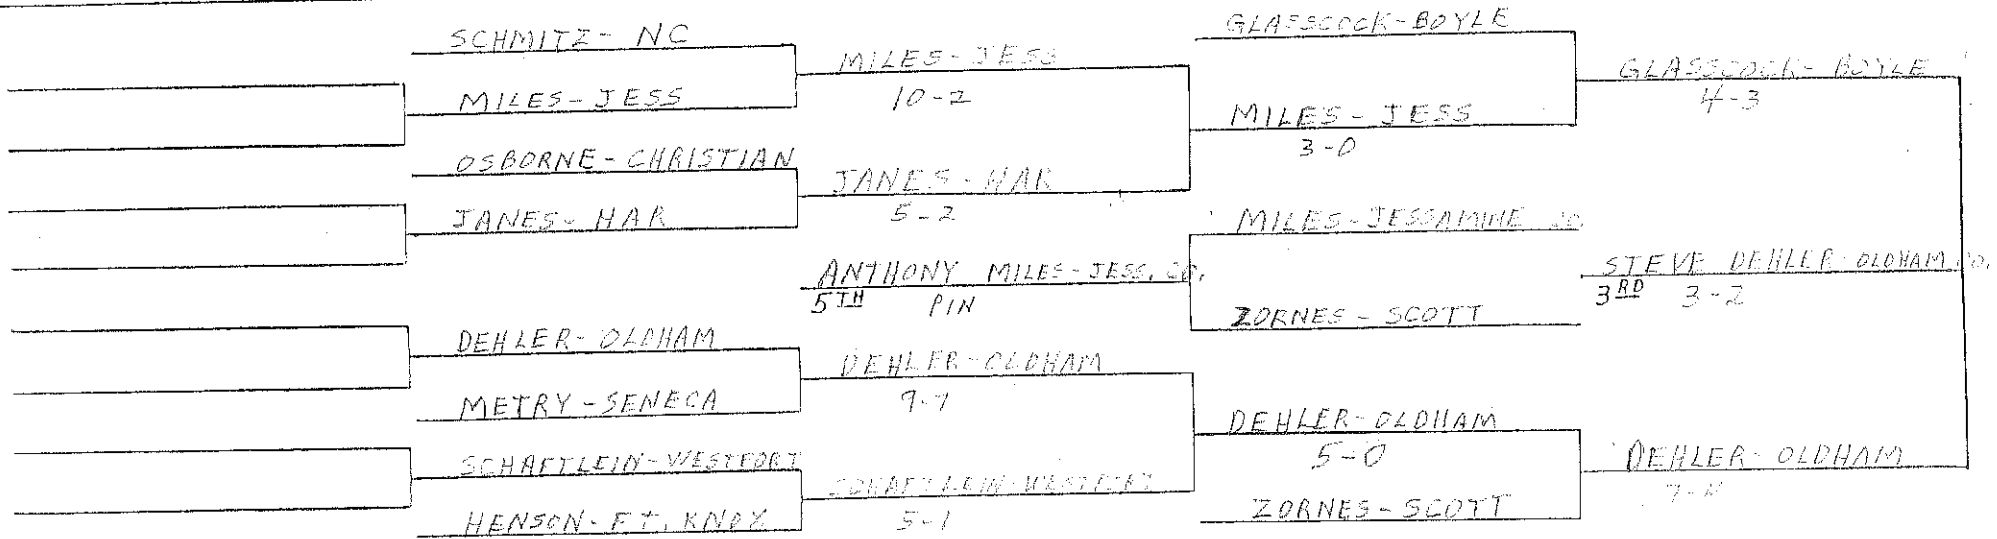 SCHMITZ - NC
MILES - JESS
OSBORNE - CHRISTIAN
JANES - HAR
DEHLER - OLDHAM
METRY - SENECA
SCHAFTLEIN - WESTPORT
HENSON - FT. KNOX
MILES - JESS
10-2
JANES - HAR
5-2
ANTHONY MILES - JESS. CO.
5TH PIN
DEHLER - OLDHAM
SCHAFTLEIN - WESTPORT
5-1
GLASSCOCK - BOYLE
MILES - JESS
3-0
MILES - JESSAMINE CO.
ZORNES - SCOTT
DEHLER - OLDHAM
5-0
ZORNES - SCOTT
GLASSCOCK - BOYLE
4-3
STEVE DEHLER - OLDHAM CO.
3RD 3-2
DEHLER - OLDHAM